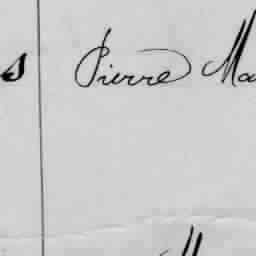 s Pierre Ma
M